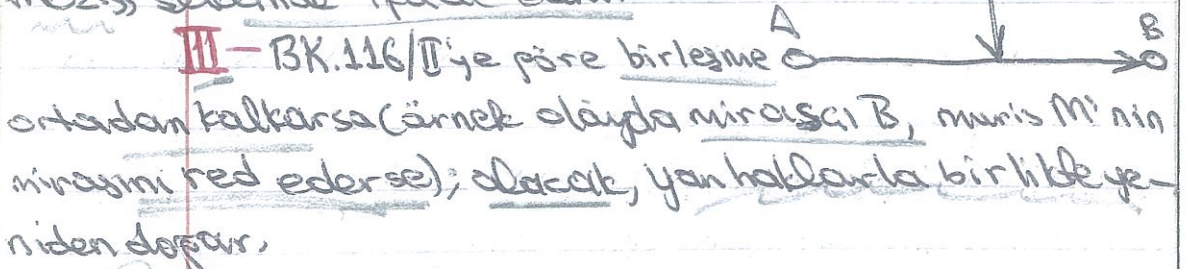 III - BK.116/II'ye göre birleşme A B
ortadan kalkarsa (örnek olayda mirasçı B, muris M'nin
mirasını red ederse); alacak, yan haklarla birlikte ye-
niden doğar.